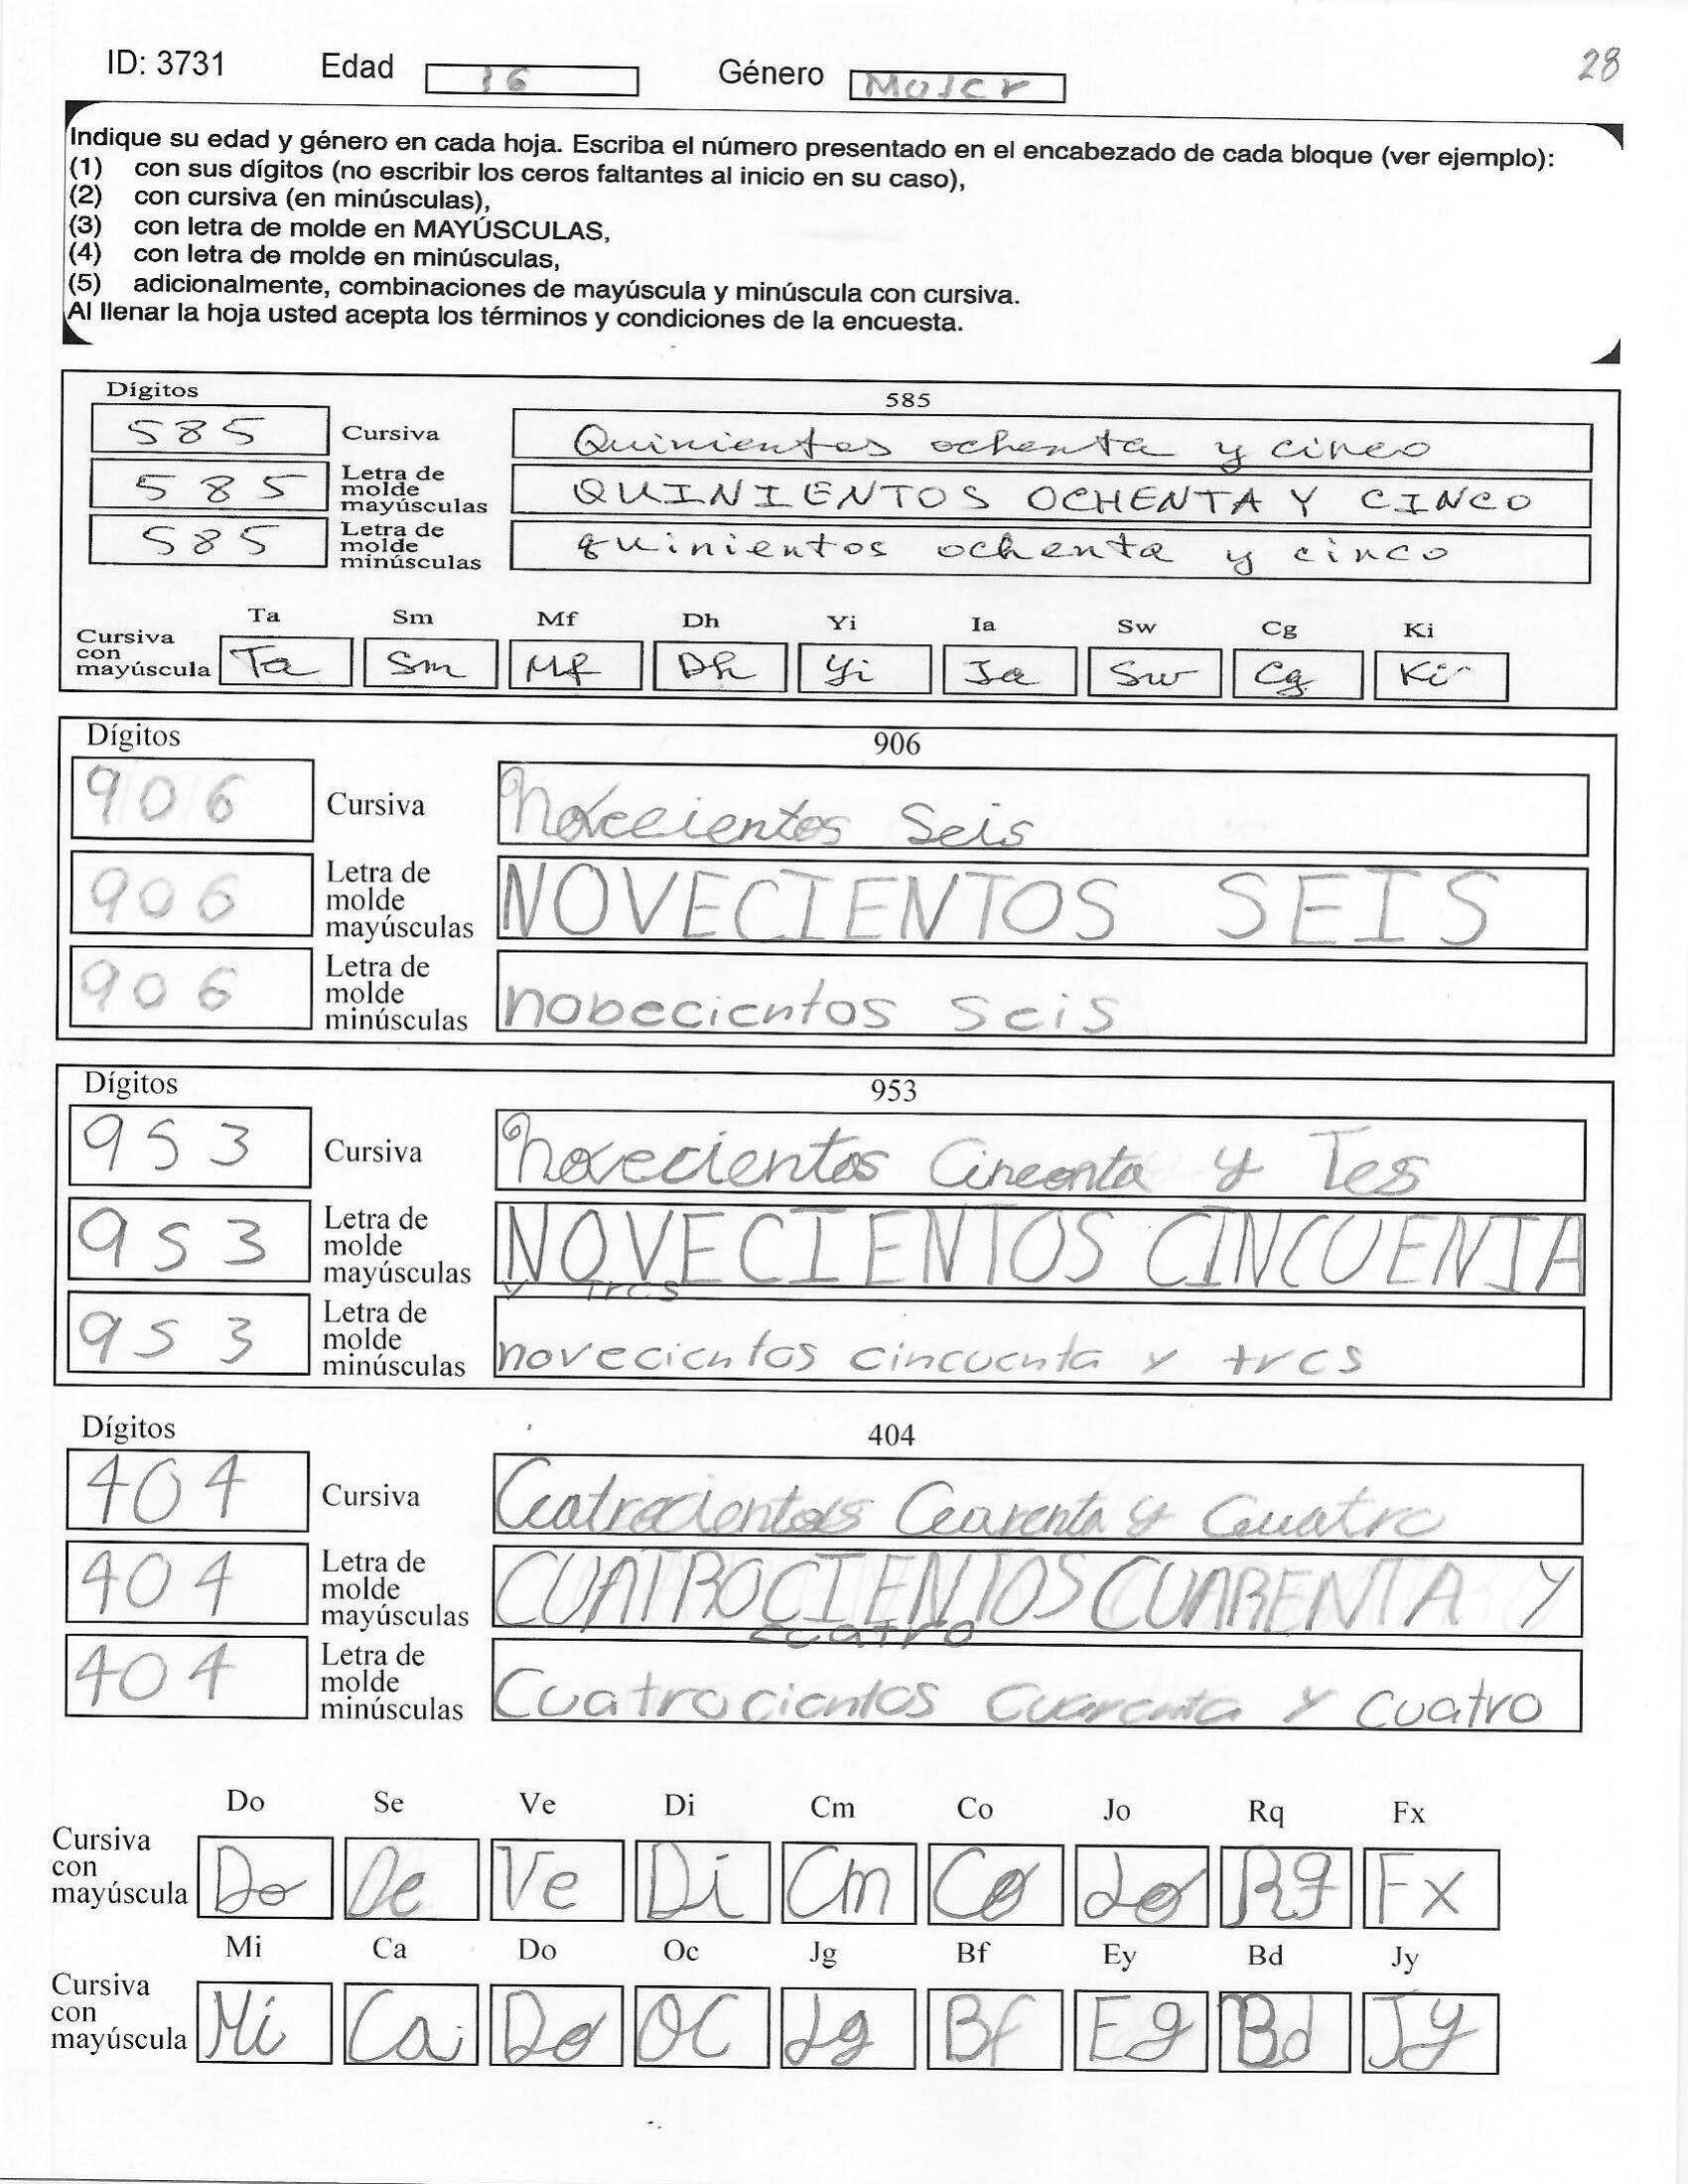 ID: 3731 Edad 16 Género MUJER 28
Indique su edad y género en cada hoja. Escriba el número presentado en el encabezado de cada bloque (ver ejemplo):
(1) con sus dígitos (no escribir los ceros faltantes al inicio en su caso),
(2) con cursiva (en minúsculas),
(3) con letra de molde en MAYÚSCULAS,
(4) con letra de molde en minúsculas,
(5) adicionalmente, combinaciones de mayúscula y minúscula con cursiva.
Al llenar la hoja usted acepta los términos y condiciones de la encuesta.
Dígitos 585
585 Cursiva Quinientos ochenta y cinco
585 Letra de molde mayúsculas QUINIENTOS OCHENTA Y CINCO
585 Letra de molde minúsculas quinientos ochenta y cinco
Ta Sm Mf Dh Yi Ia Sw Cg Ki
Cursiva con mayúscula Ta Sm Mf Dh Yi Ia Sw Cg Ki
Dígitos 906
906 Cursiva Novecientos Seis
906 Letra de molde mayúsculas NOVECIENTOS SEIS
906 Letra de molde minúsculas nobecientos seis
Dígitos 953
953 Cursiva Novecientos Cinconta y Tes
953 Letra de molde mayúsculas NOVECIENTOS CINCUENTA
y tres
953 Letra de molde minúsculas novecientos cincuenta y tres
Dígitos 404
404 Cursiva Cuatrocientos Cuarenta y Cuatro
404 Letra de molde mayúsculas CUATROCIENTOS CUARENTA Y
cuatro
404 Letra de molde minúsculas Cuatrocientos cuarenta y cuatro
Do Se Ve Di Cm Co Jo Rq Fx
Cursiva con mayúscula Do De Ve Di Cm Co Jo Rq Fx
Mi Ca Do Oc Jg Bf Ey Bd Jy
Cursiva con mayúscula Mi Ca Do OC Jg Bf Eg Bd Jy